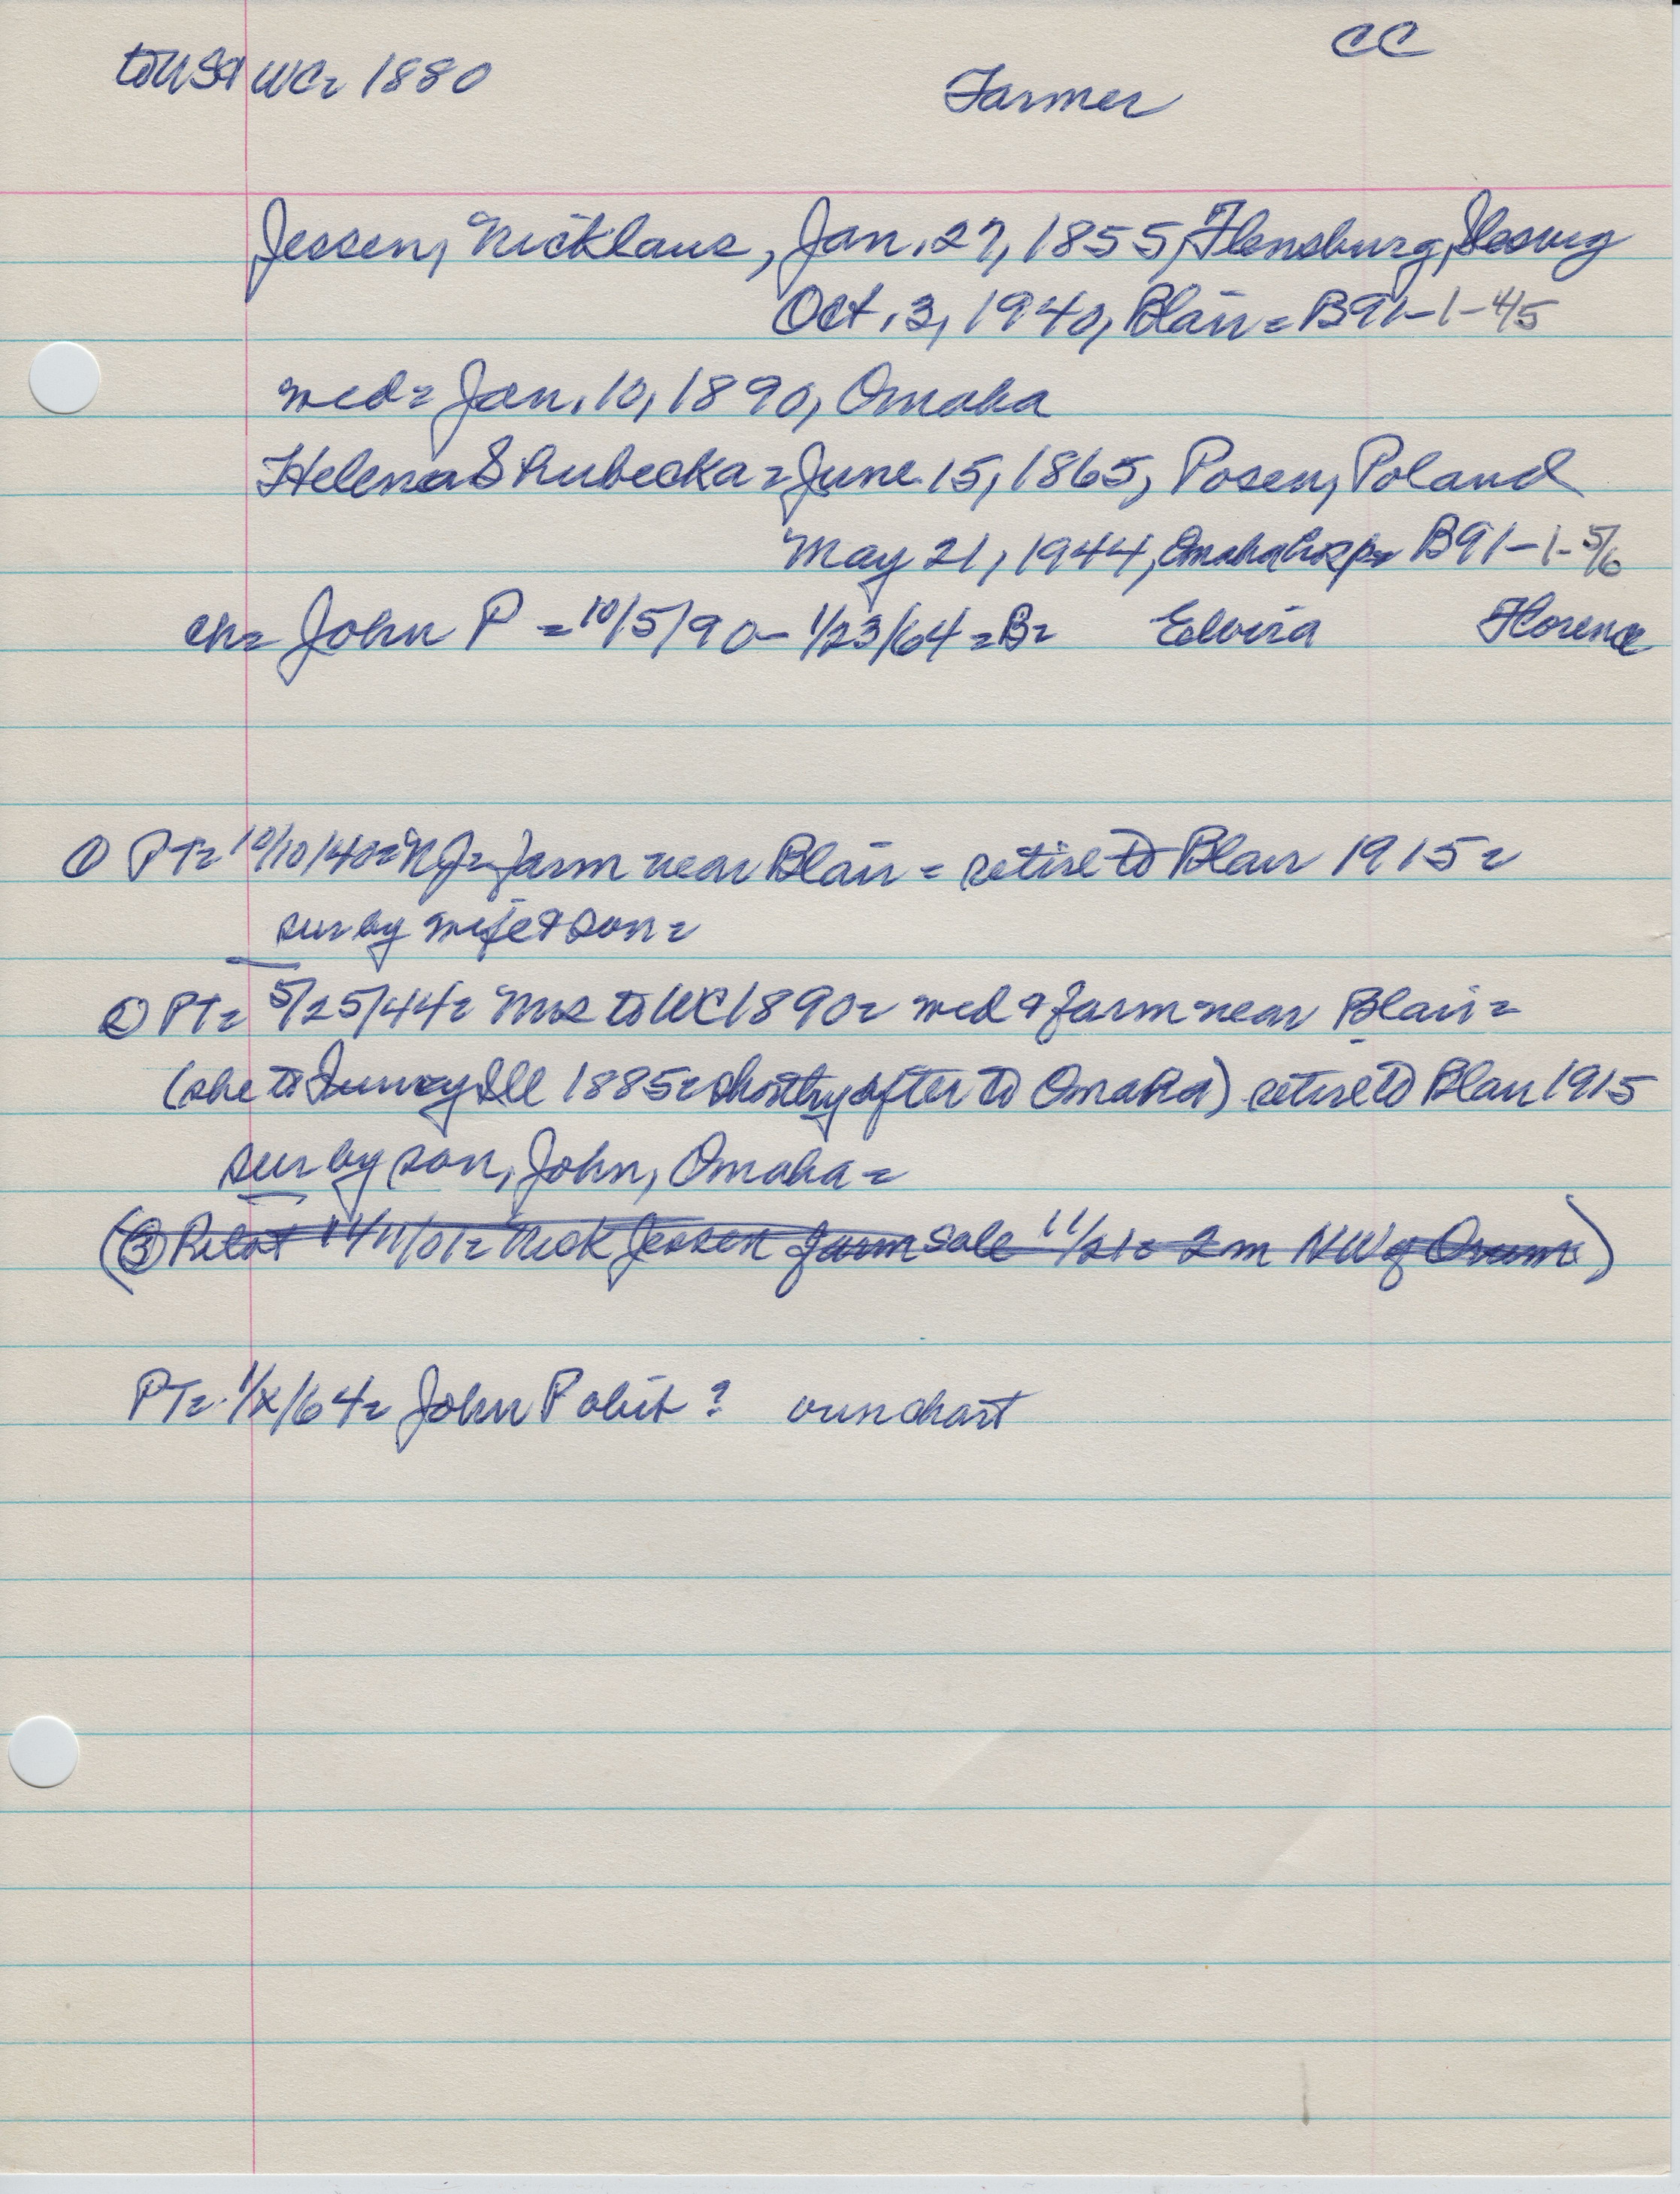 CC
to USA WC = 1880
Farmer
Jessen, Nicklaus, Jan. 27, 1855, Flensburg, Slesvig
Oct. 3, 1940, Blair = B91-1-4/5
wed = Jan. 10, 1890, Omaha
Helena = June 15, 1865, Posen, Poland
May 21, 1944, Omaha hosp = B91-1-5/6
ch = John P = 10/5/90 - 1/23/64 = B = Elvira Florence
① PT = 10/10/40 = NJ = farm near Blair = retire to Blair 1915 =
sur by wife & son =
② PT = 5/25/44 = Mrs to WC 1890 = wed & farm near Blair =
(she to Ill 1885 = shortly after to Omaha) retire to Blair 1915
sur by son, John, Omaha =
(③ Pilot 11/01 = Nick Jessen farm sale 11/21 = 2 m NW of Orum)
PT = 1/X/64 = John P obit ?